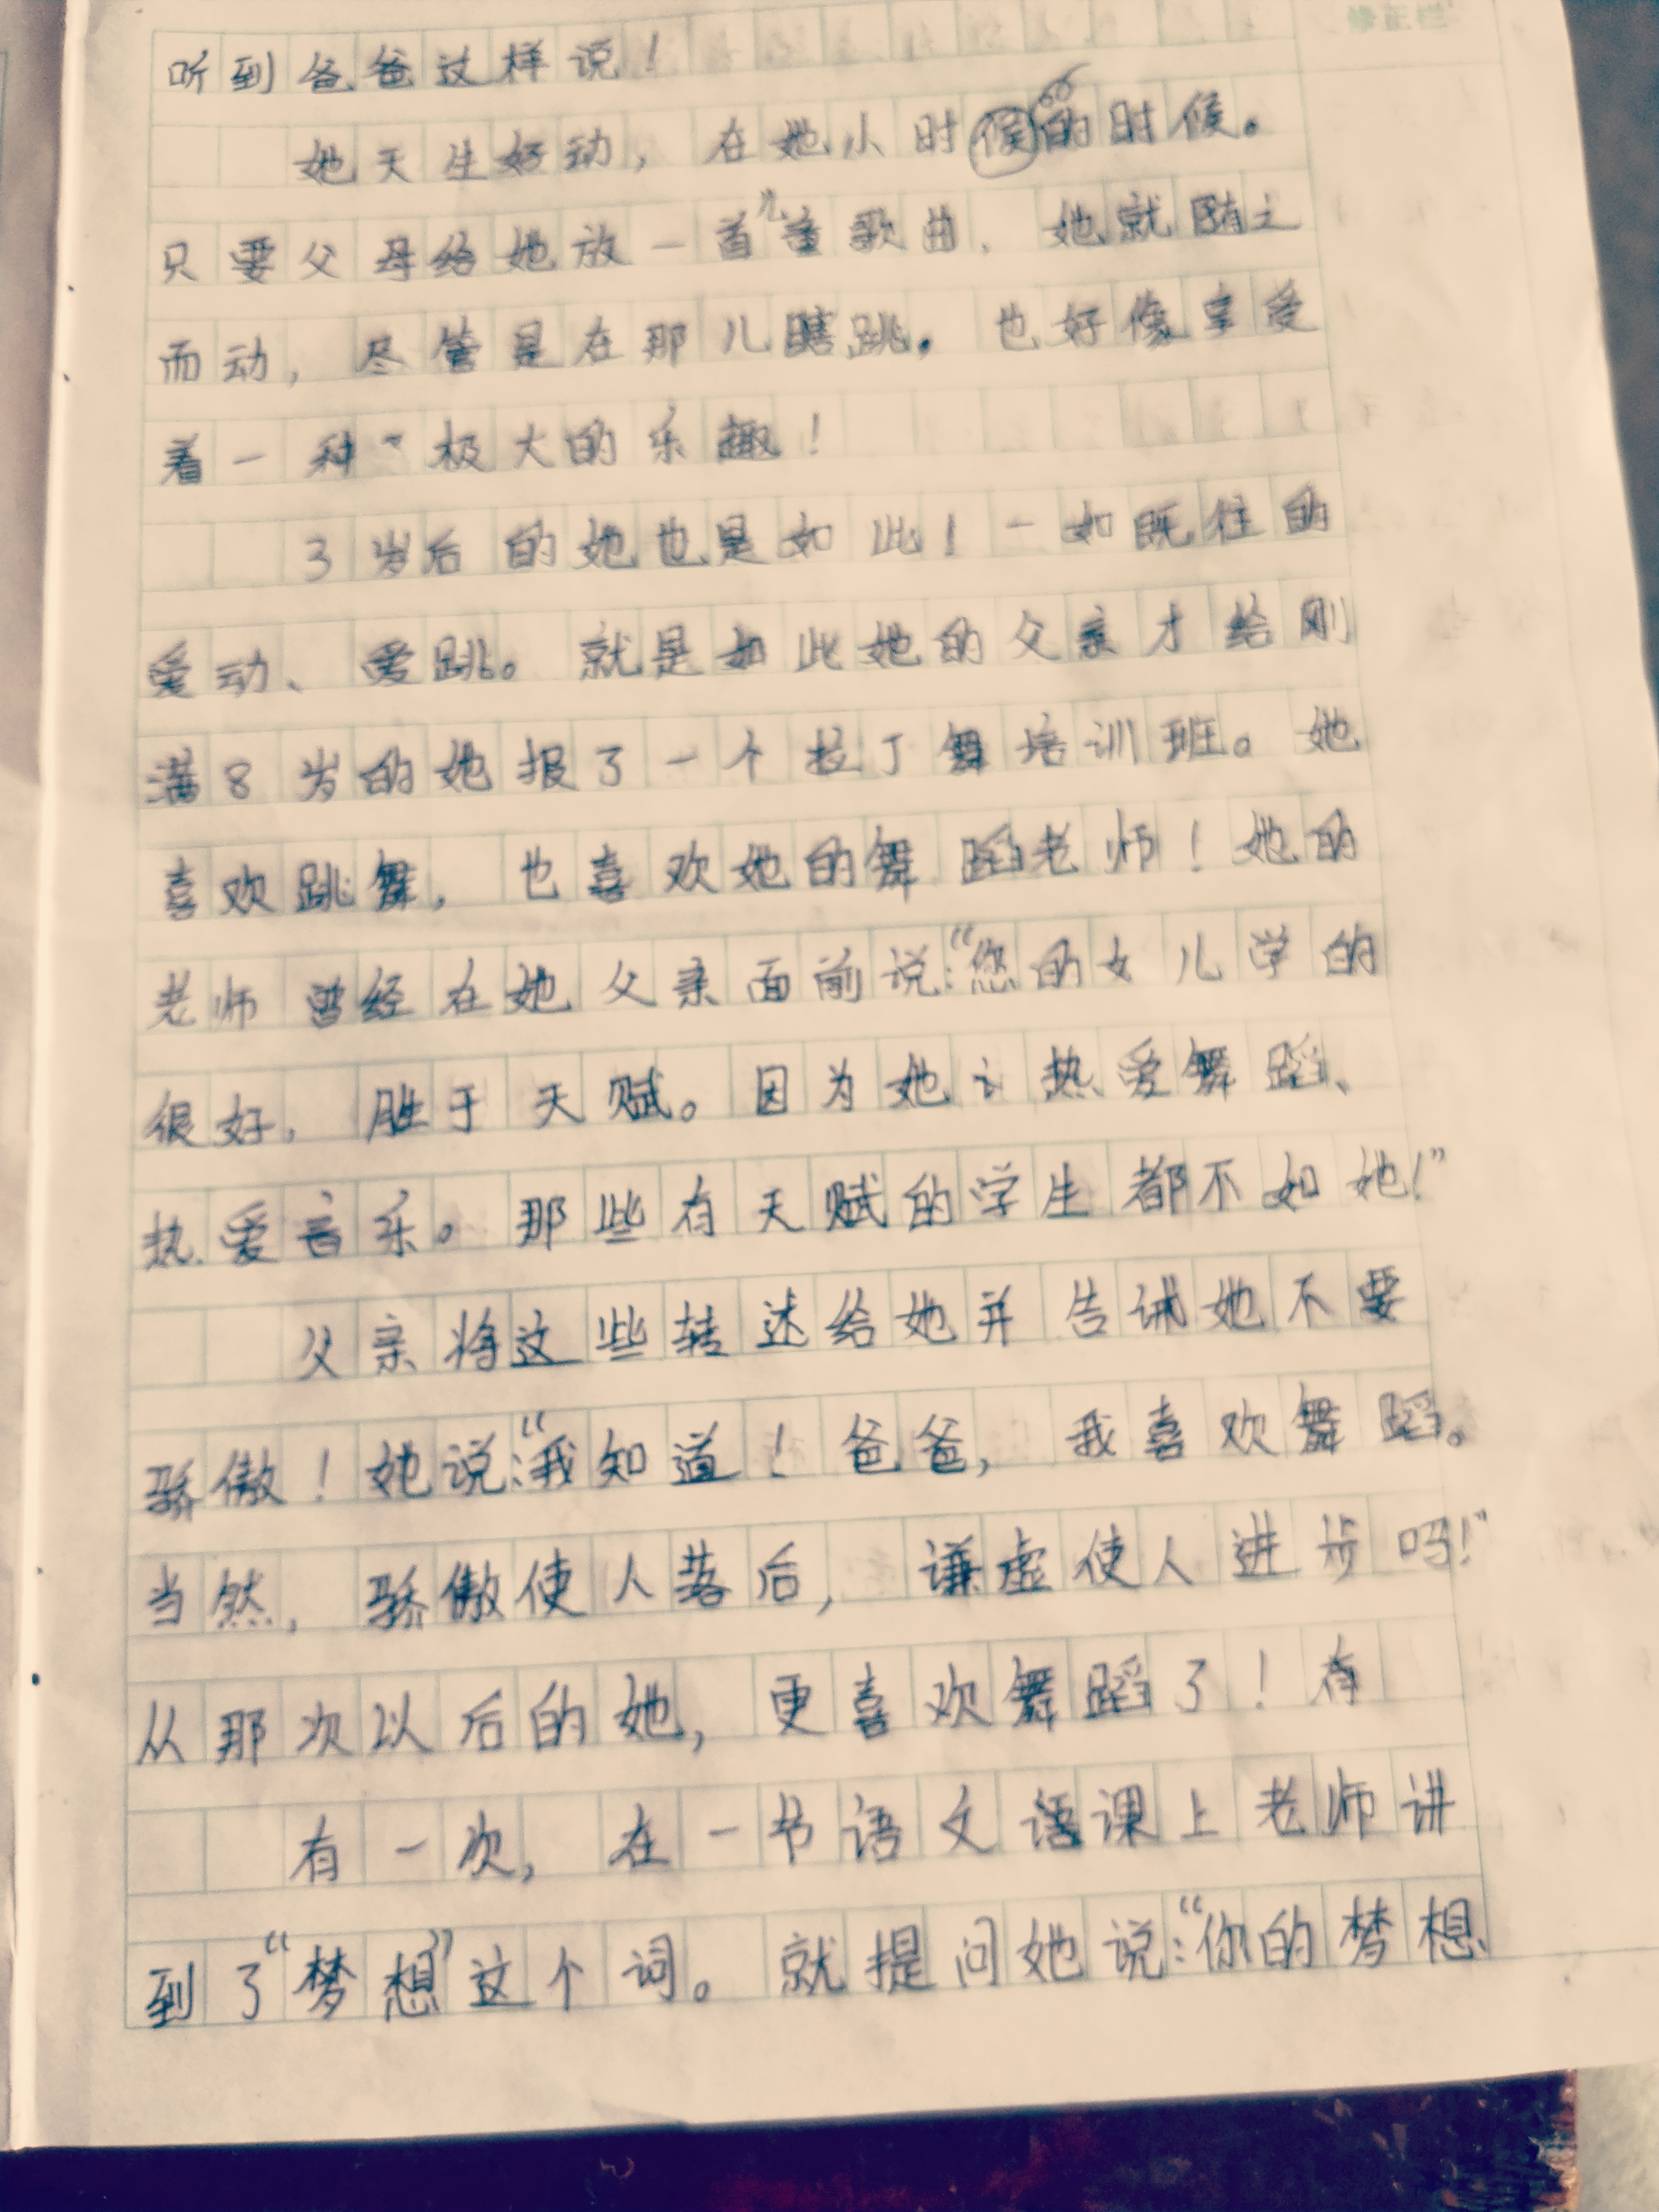 修正栏
听到爸爸这样说！
她天生好动，在她小时候的时候。
只要父母给她放一首儿童歌曲，她就随之
而动，尽管是在那儿瞎跳。也好像享受
着一种极大的乐趣！
3岁后的她也是如此！一如既往的
爱动、爱跳。就是如此她的父亲才给刚
满8岁的她报了一个拉丁舞培训班。她
喜欢跳舞，也喜欢她的舞蹈老师！她的
老师曾经在她父亲面前说：“您的女儿学的
很好，胜于天赋。因为她热爱舞蹈、
热爱音乐。那些有天赋的学生都不如她！”
父亲将这些转述给她并告诫她不要
骄傲！她说：“我知道！爸爸，我喜欢舞蹈。
当然，骄傲使人落后，谦虚使人进步吗！”
从那次以后的她，更喜欢舞蹈了！有
有一次，在一节语文课上老师讲
到了“梦想”这个词。就提问她说：“你的梦想